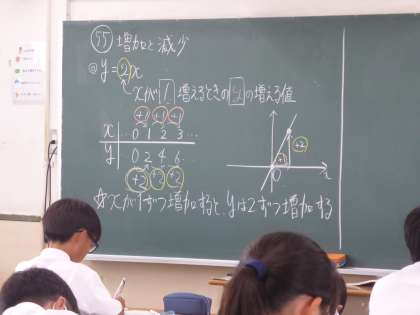 55 増加と減少
◎ y=2x
xが1増えるときのyの増える値
+1 +1 +1
x … 0 1 2 3 …
y … 0 2 4 6 …
+2 +2 +2
+2
+1
O x
☆xが1ずつ増加すると、yは2ずつ増加する